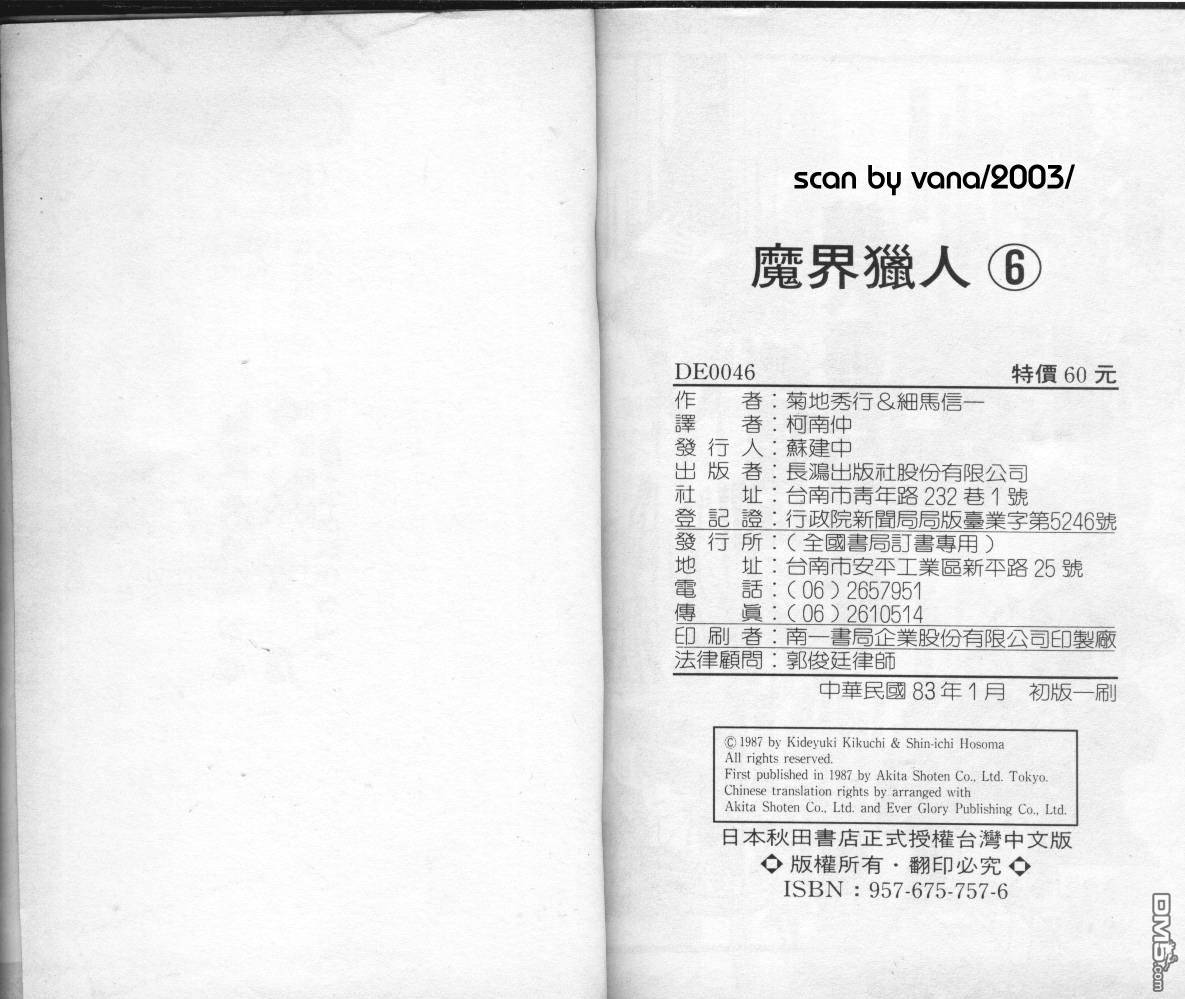 scan by vana/2003/
魔界獵人 ⑥
DE0046 特價 60 元
作者：菊地秀行＆細馬信一
譯者：柯南仲
發行人：蘇建中
出版者：長鴻出版社股份有限公司
社址：台南市靑年路 232 巷 1 號
登記證：行政院新聞局局版臺業字第5246號
發行所：（全國書局訂書專用）
地址：台南市安平工業區新平路 25 號
電話：（06）2657951
傳眞：（06）2610514
印刷者：南一書局企業股份有限公司印製廠
法律顧問：郭俊廷律師
中華民國 83 年 1 月 初版一刷
© 1987 by Kideyuki Kikuchi & Shin-ichi Hosoma
All rights reserved.
First published in 1987 by Akita Shoten Co., Ltd. Tokyo.
Chinese translation rights by arranged with
Akita Shoten Co., Ltd. and Ever Glory Publishing Co., Ltd.
日本秋田書店正式授權台灣中文版
版權所有・翻印必究
ISBN：957-675-757-6
DM5.com